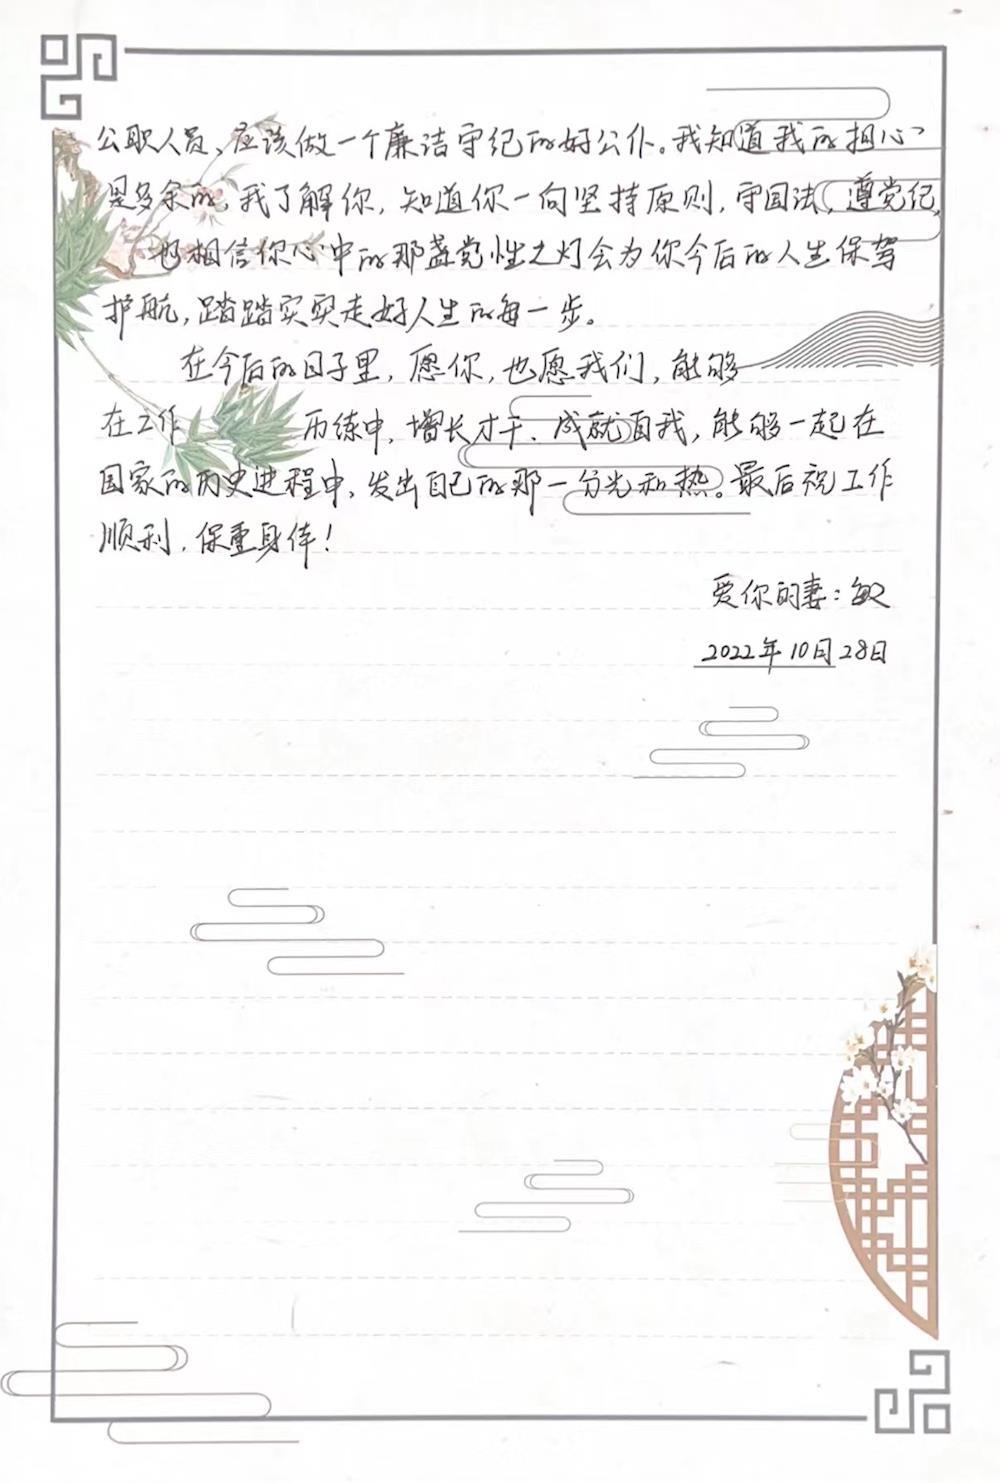 公职人员、应该做一个廉洁守纪的好公仆。我知道我的担心
是多余的，我了解你，知道你一向坚持原则，守国法，遵党纪，
也相信你心中的那盏党性之灯会为你今后的人生保驾
护航，踏踏实实走好人生的每一步。
在今后的日子里，愿你，也愿我们，能够
在工作 历练中，增长才干、成就自我，能够一起在
国家的历史进程中，发出自己的那一分光和热。最后祝工作
顺利，保重身体！
爱你的妻：敏
2022年10月28日